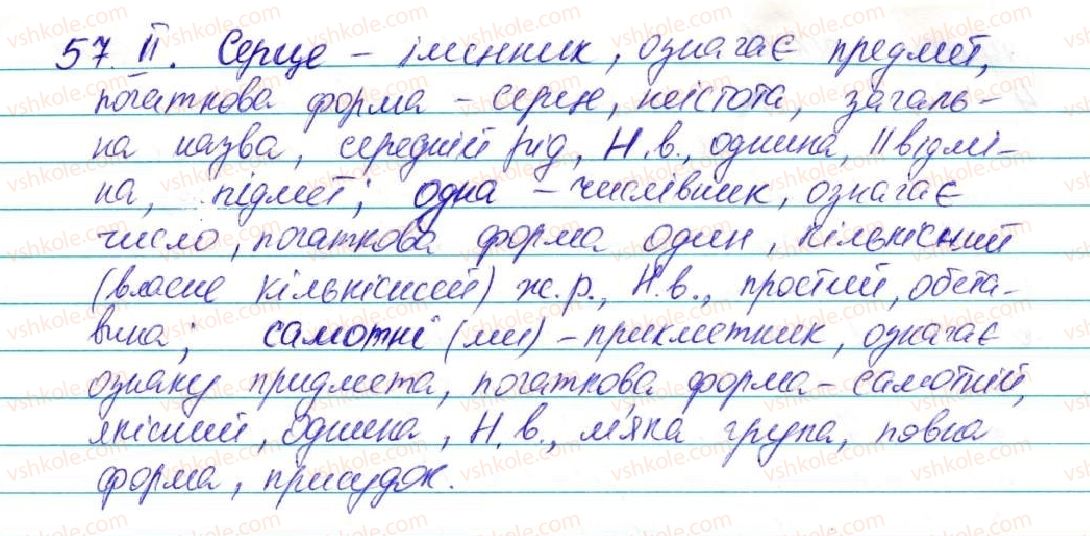 57. II. Серце – іменник, означає предмет,
початкова форма – серце, неістота, загаль-
на назва, середній рід, Н.в., однина, II відмі-
на, підмет; одна – числівник, означає
число, початкова форма один, кількісний
(власне кількісний) ж.р., Н.в., простий, обста-
вина; самотні (ми) – прикметник, означає
ознаку придмета, початкова форма – самотній,
якісний, однина, Н.в., м'яка група, повна
форма, присудок.